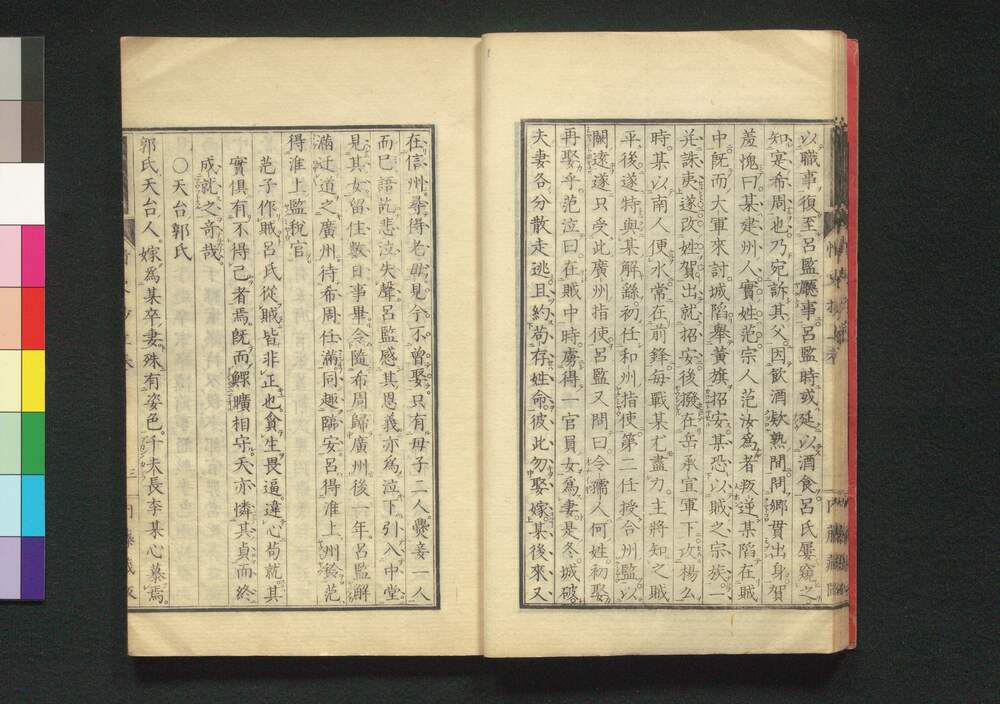 以職事復至呂監廳事呂監時或延以酒食呂氏屢窺之
知宴希周也乃宛訴其父因飲酒欵熟間問鄉貫出身賀
羞愧曰某建州人實姓范宗人范汝為者叛逆某陷在賊
中旣而大軍來討城陷舉黃旗招安某恐以賊之宗族一
并誅夷遂改姓賀出就招安後撥在岳承宣軍下攻楊么
時某以南人便水常在前鋒每戰某尤盡力主將知之賊
平後遂特與某解繇初任和州指使第二任授合州監以
闕遠遂只受此廣州指使呂監又問曰令孺人何姓初娶
再娶乎范泣曰在賊中時虜得一官員女為妻是冬城破
夫妻各分散走逃且約苟存姓命彼此勿娶嫁某後來又
在信州尋得老母見今不曾娶只有母子二人爨妾一人
而已語訖悲泣失聲呂監感其恩義亦為泣下引入中堂
見其女留住數日事畢令隨希周歸廣州後一年呂監解
滿迂道之廣州待希周任滿同趣臨安呂得淮上州鈐范
得淮上監稅官
范子作賊呂氏從賊皆非正也貪生畏逼違心苟就其
實俱有不得已者焉旣而鰥曠相守天亦憐其貞而終
成就之奇哉
○天台郭氏
郭氏天台人嫁為某卒妻殊有姿色千夫長李某心慕焉
三